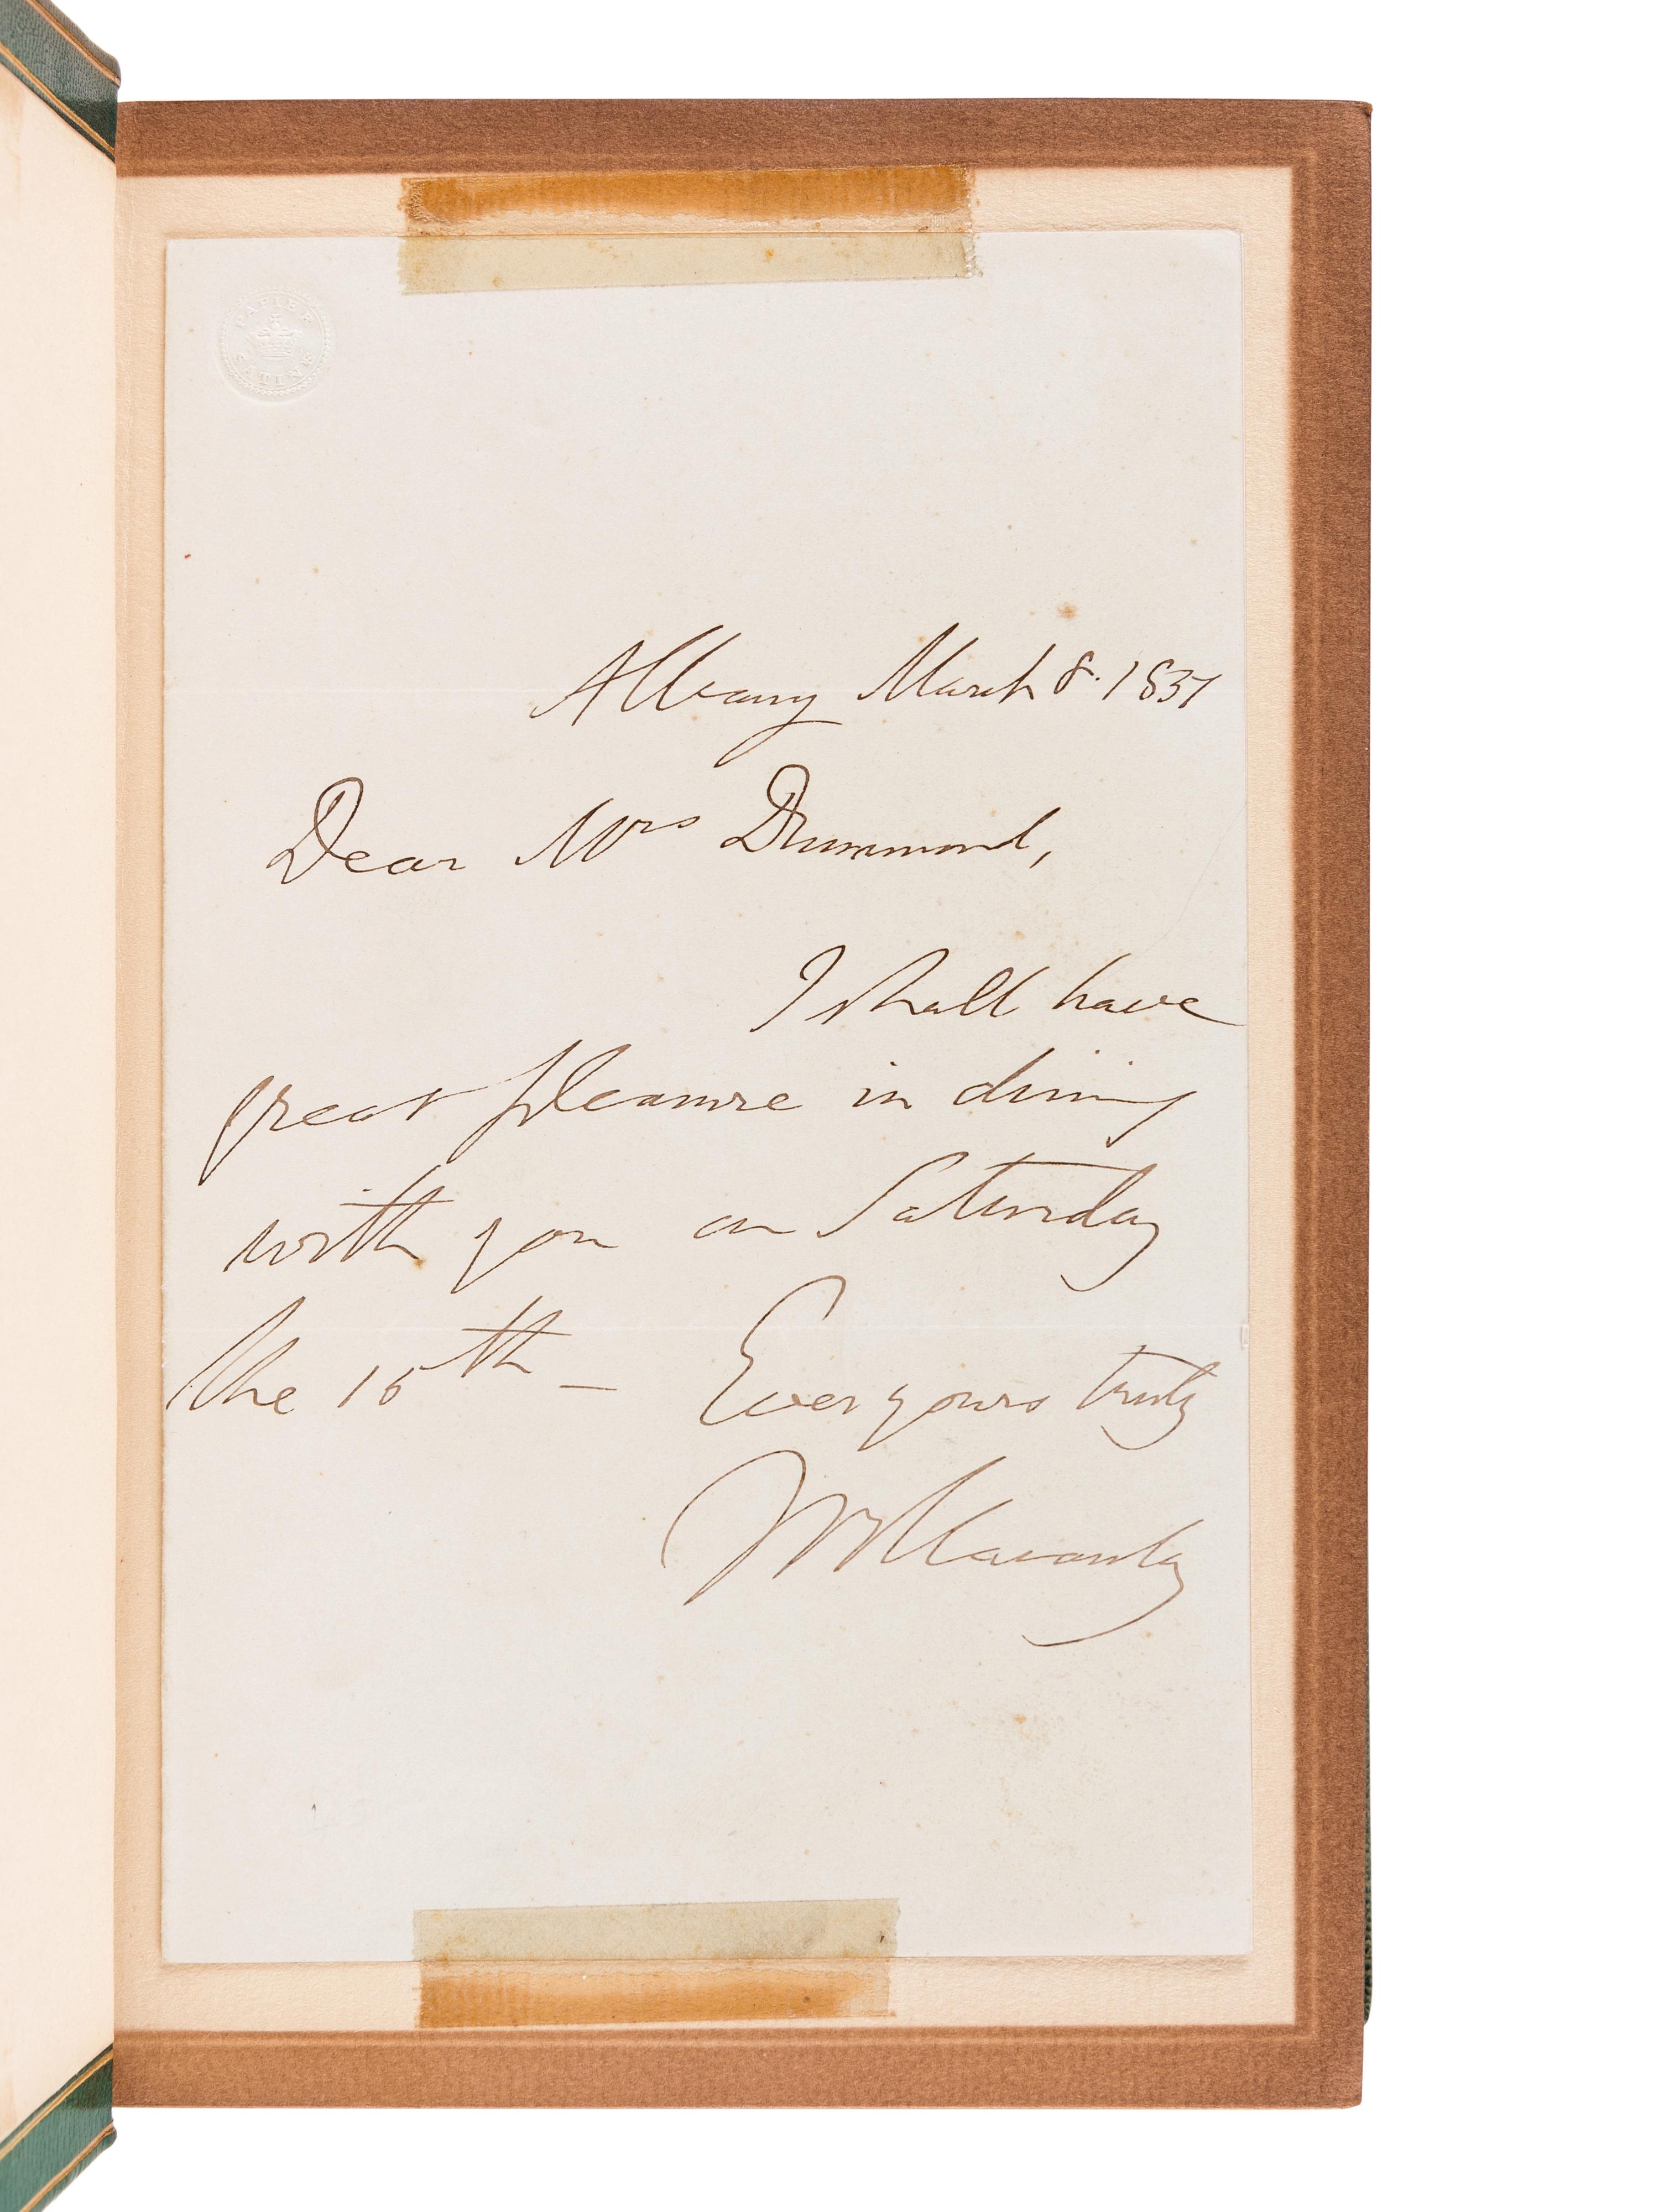 PAPIER
SATINÉ
Albany March 8. 1851
Dear Mrs Drummond,
I shall have
great pleasure in dining
with you on Saturday
the 15th – Ever yours truly
TBMacaulay